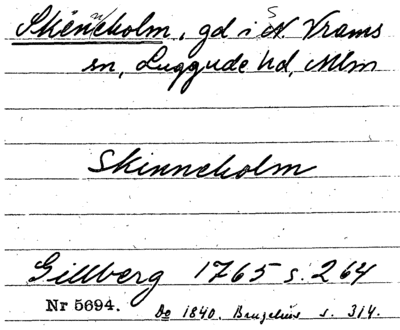 Skenneholm, gd i S N. Vrams
sn, Luggude hd, Mlm
Skinneholm
Gillberg 1765 s. 264
Nr 5694. Do 1840. Bengelius s. 314.